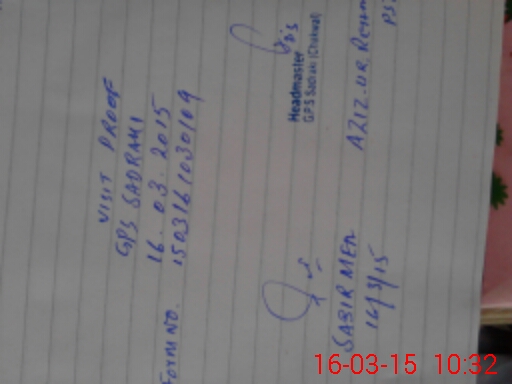 VISIT PROOF
GPS SADRAHI
16.03.2015
Form No. 150316103010109
Headmaster
GPS Sadrahi (Chakwal)
SABIR MEH
16/3/15
AZIZ-UR-Rehm
PS
16-03-15 10:32